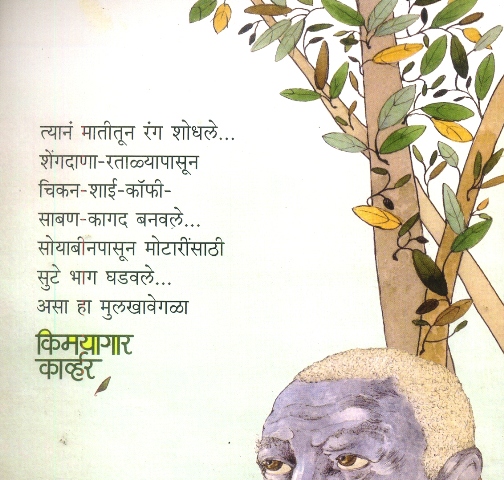 त्यानं मातीतून रंग शोधले...
शेंगदाणा-रताळ्यापासून
चिकन-शाई-कॉफी-
साबण-कागद बनवले...
सोयाबीनपासून मोटारींसाठी
सुटे भाग घडवले...
असा हा मुलखावेगळा
किमयागार
कार्व्हर